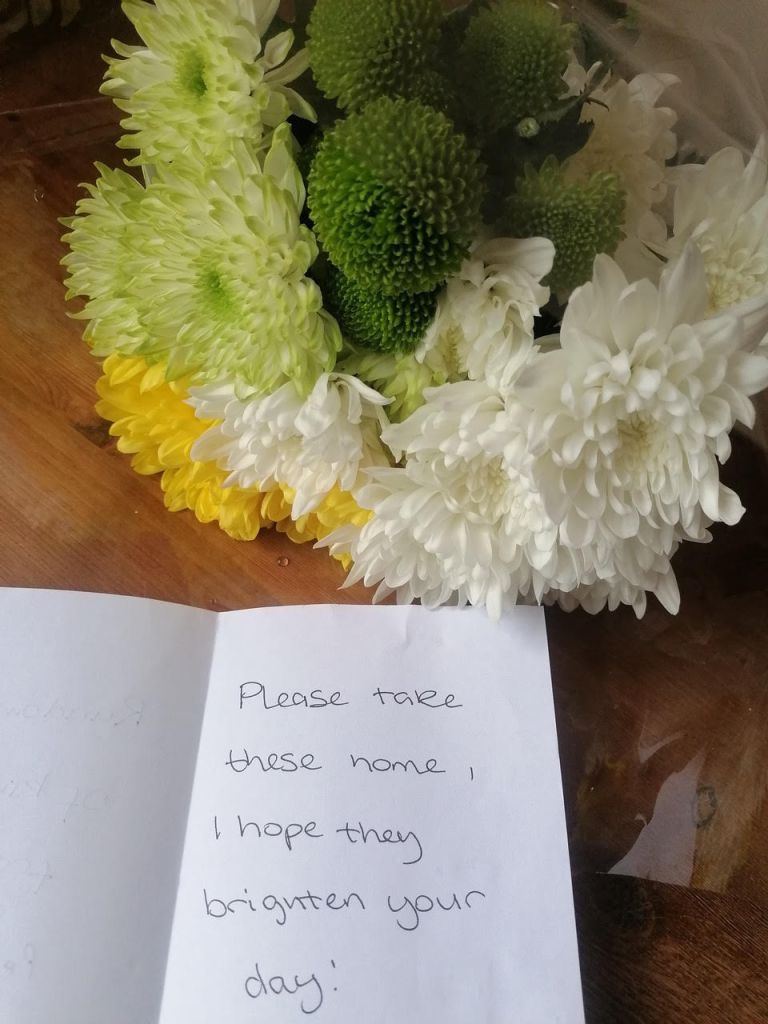 Please take
these home,
I hope they
brighten your
day!